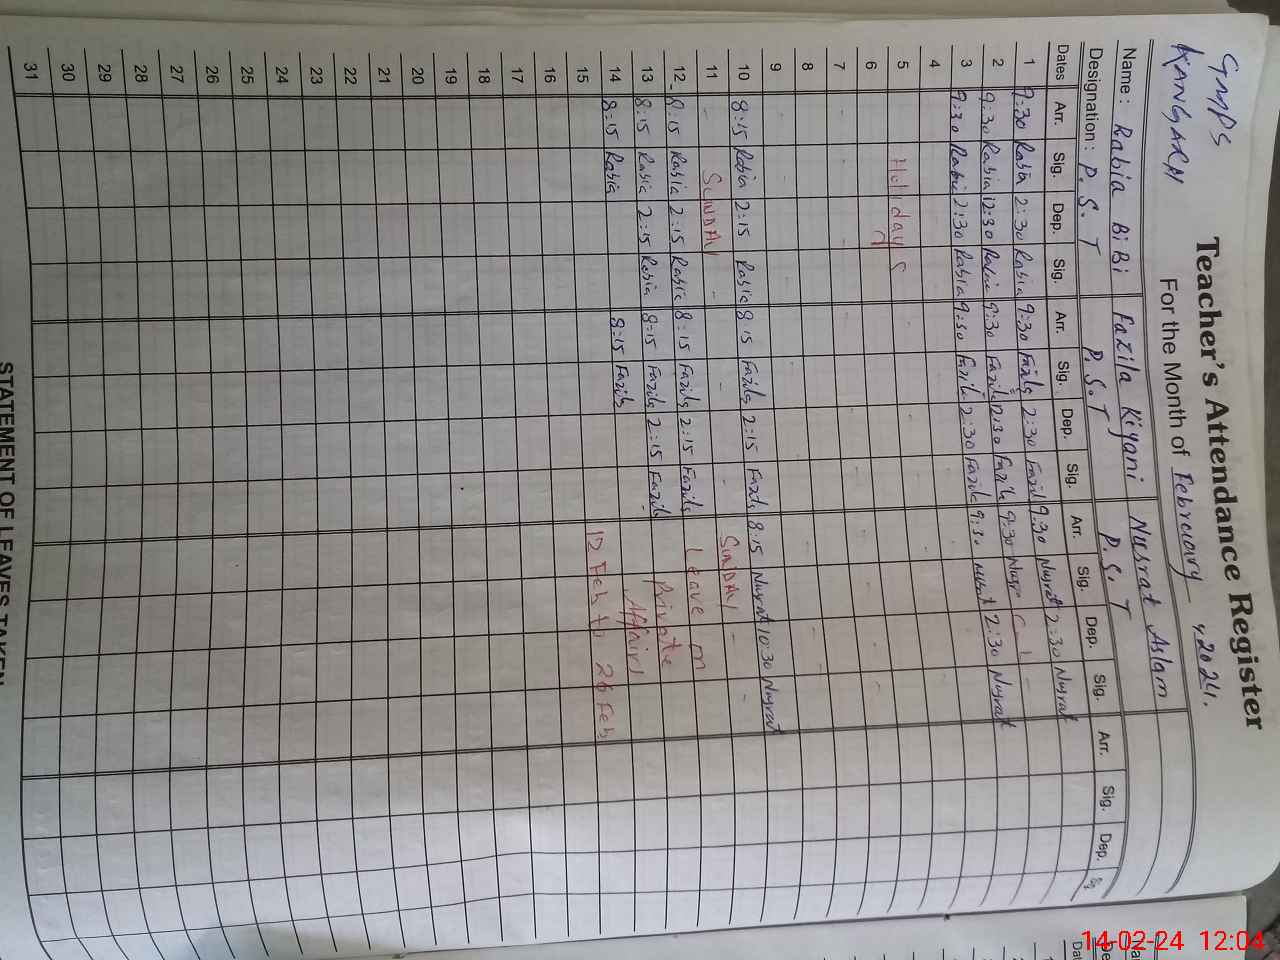 GMPS
KANGARH
Teacher's Attendance Register
For the Month of Februeary 2024.
Name : Rabia BiBi Fazila Kiyani Nusrat Aslam
Designation : P.S.T P.S.T P.S.T
Dates Arr. Sig. Dep. Sig. Arr. Sig. Dep. Sig. Arr. Sig. Dep. Sig. Arr. Sig. Dep. Sig
1 9:30 Rabia 2:30 Rabia 9:30 Fazila 2:30 Fazila 9:30 Nusrat 2:30 Nusrat
2 9:30 Rabia 12:30 Rabia 9:30 Fazila 12:30 Fazila 9:30 Nusr
3 9:30 Rabia 2:30 Rabia 9:30 Fazila 2:30 Fazila 9:30 Nusrat 2:30 Nusrat
4
5 Holidays
6
7
8
9
10 8:15 Rabia 2:15 Rabia 8:15 Fazila 2:15 Fazila 8:15 Nusrat 10:30 Nusrat
11 SUNDAY SUNDAY
12 8:15 Rabia 2:15 Rabia 8:15 Fazila 2:15 Fazila Leave on
13 8:15 Rabia 2:15 Rabia 8:15 Fazila 2:15 Fazila Private
14 8:15 Rabia 8:15 Fazila Affairs
15 12 Feb to 26 Feb
16
17
18
19
20
21
22
23
24
25
26
27
28
29
30
31
STATEMENT OF LEAVES TAKEN
14-02-24 12:04